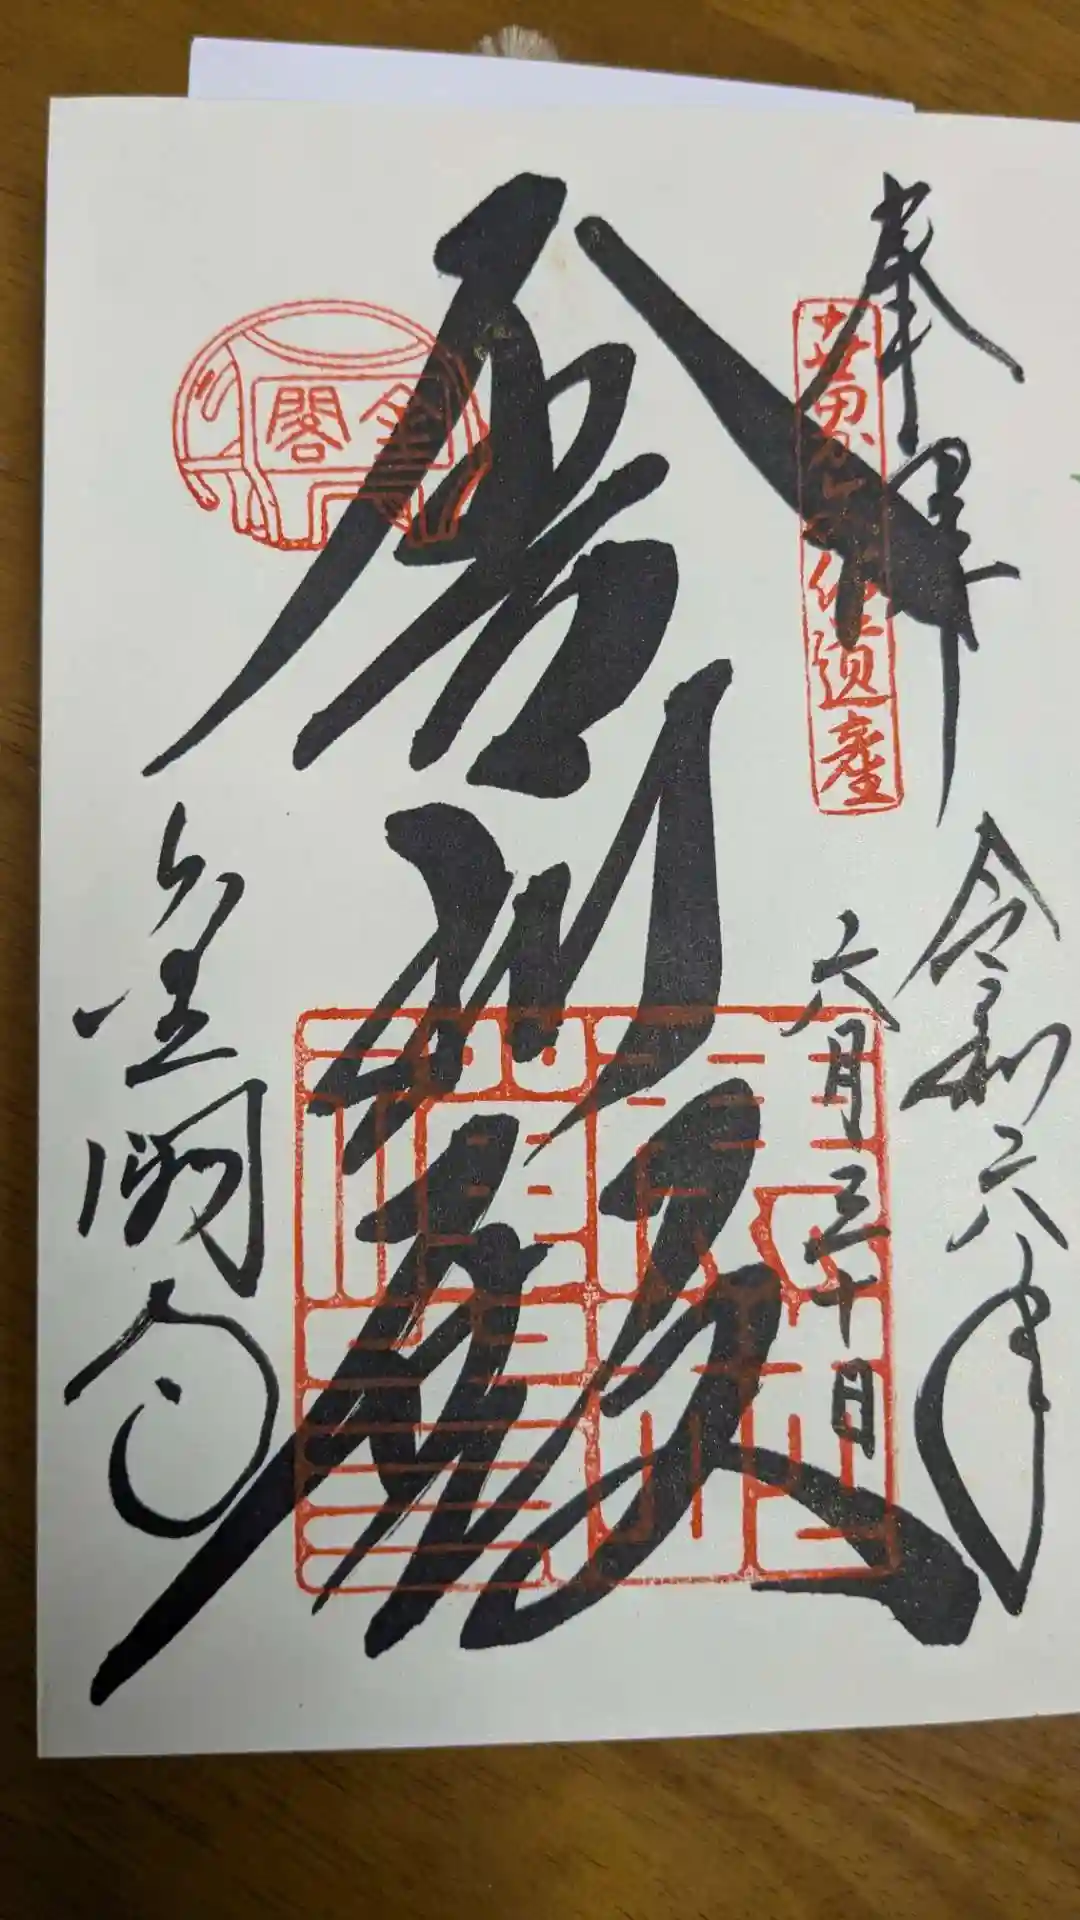 奉拝
世界文化遺産
令和六年
六月三十日
舎利殿
金閣
金閣寺